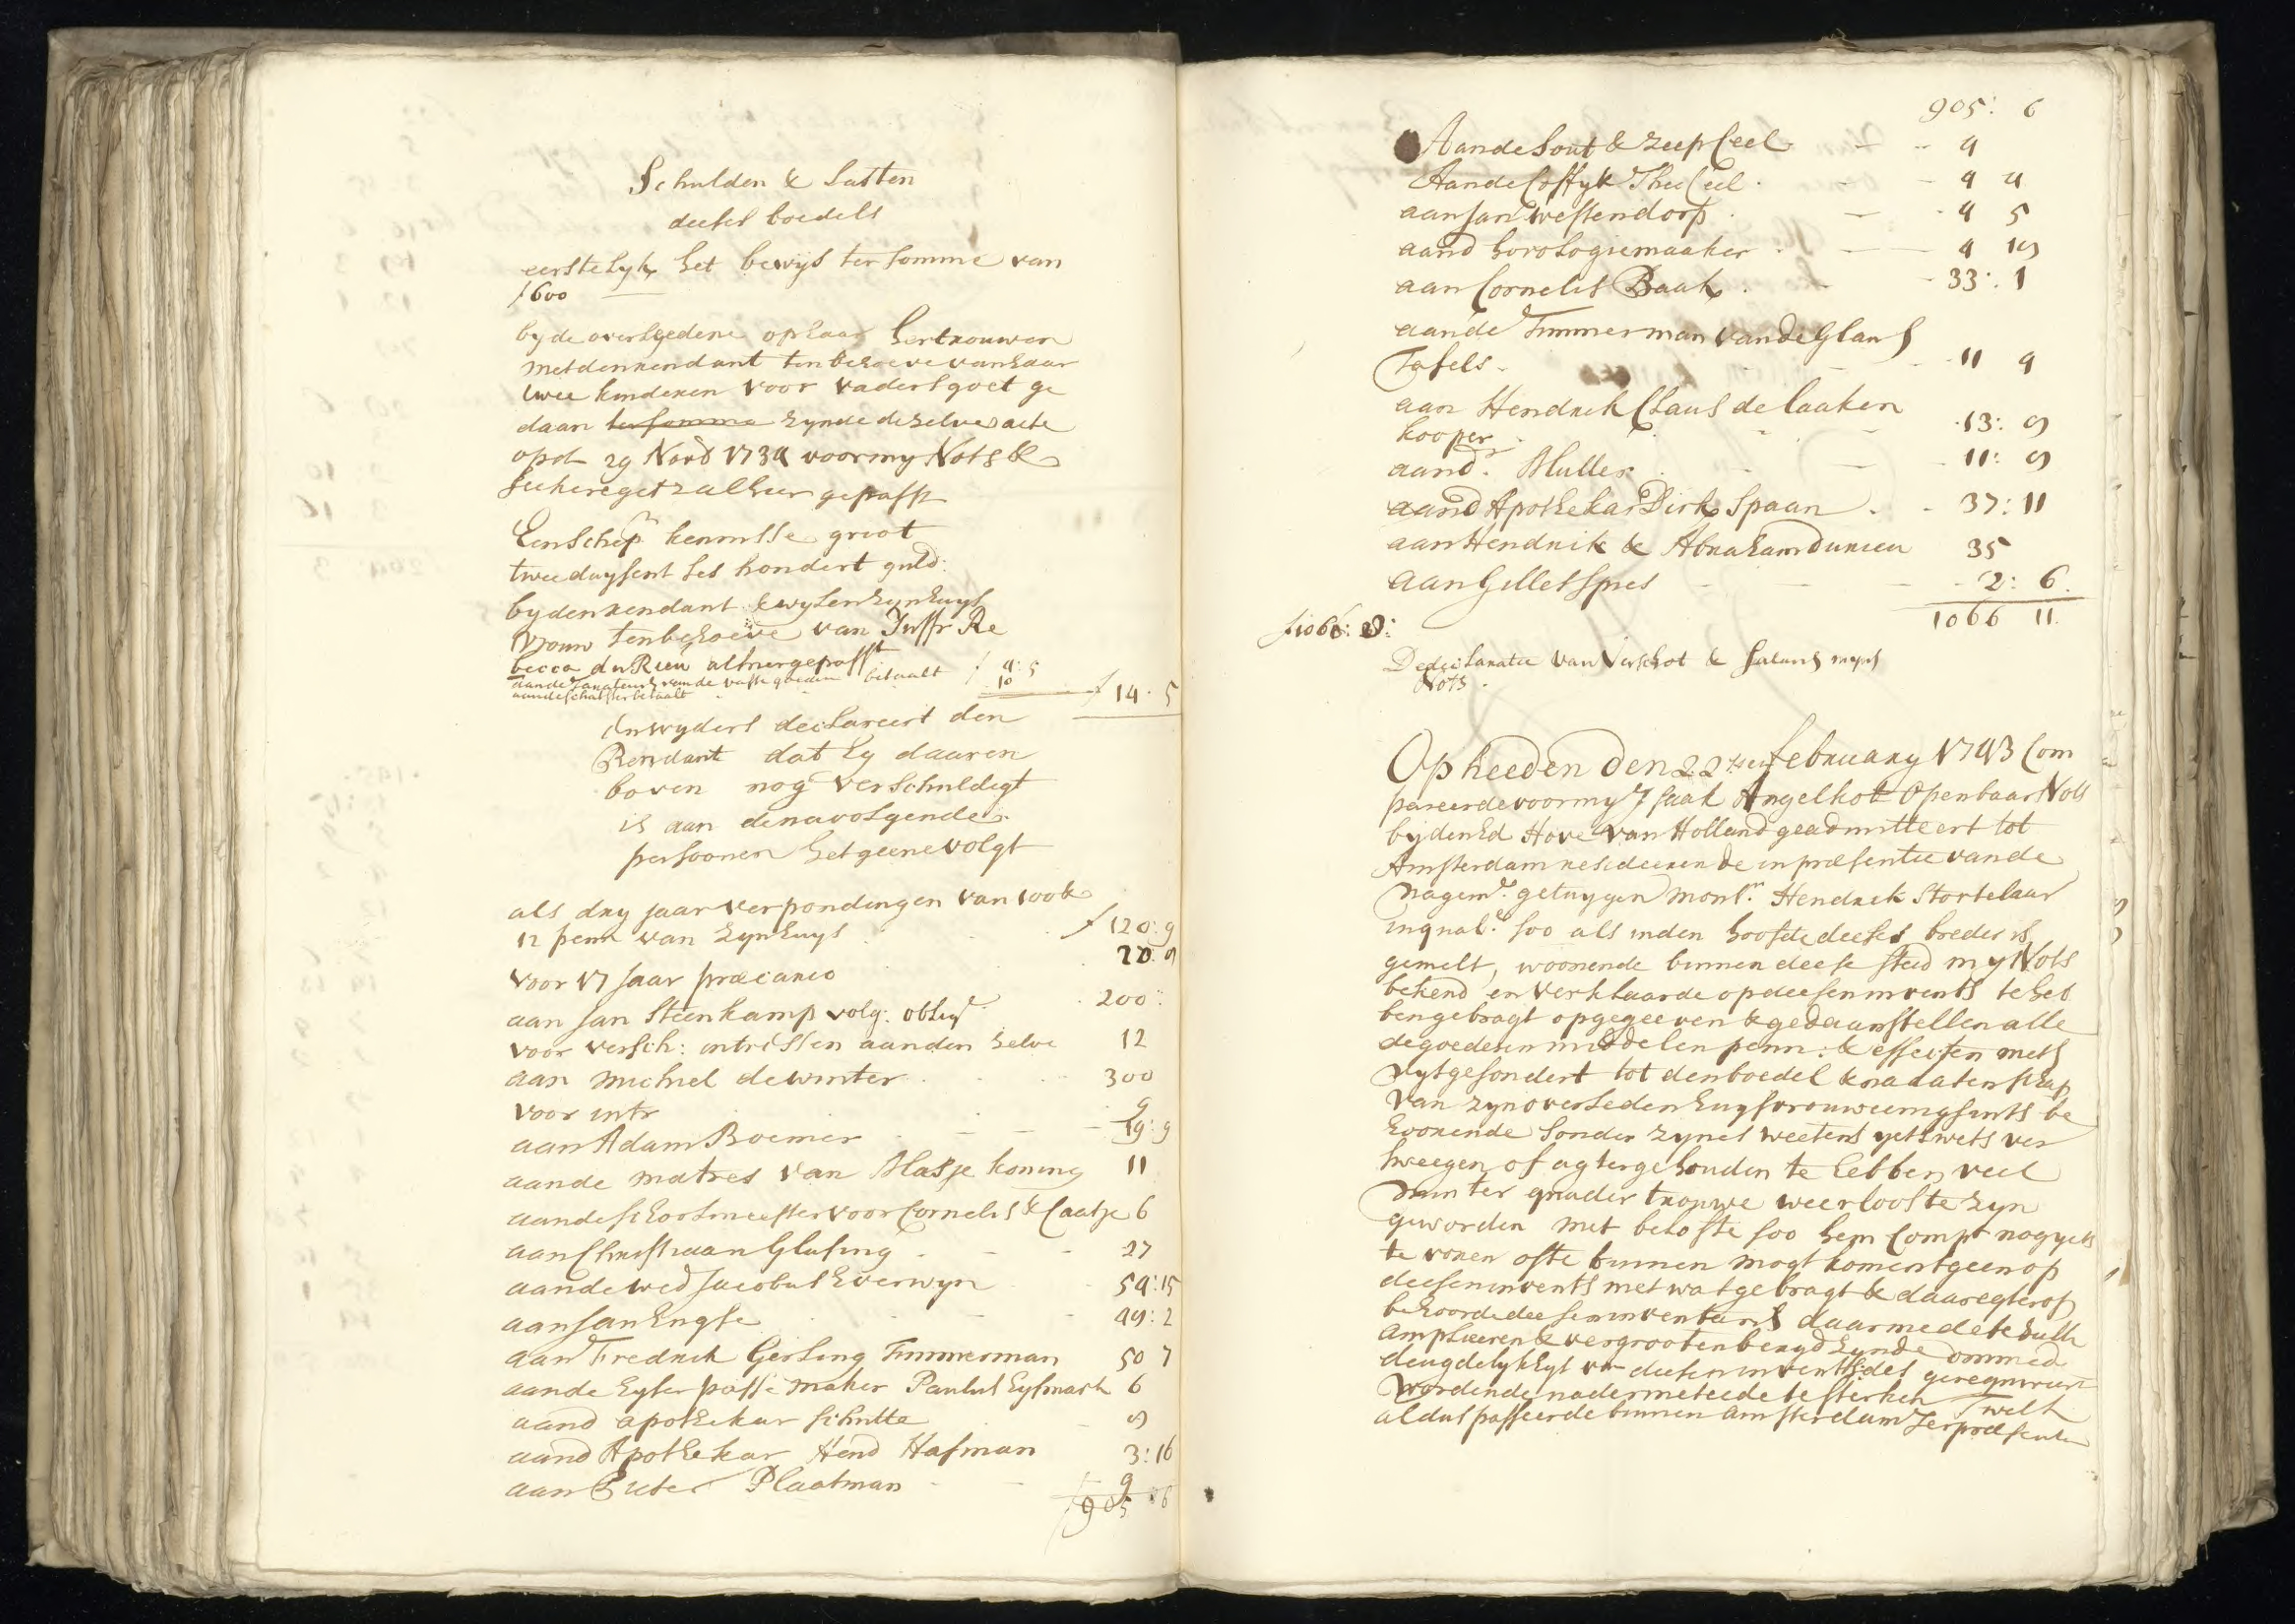 Schulden & Lasten
deeses boedels
eerstelyk het bewys ter somme van
ƒ600
by de overleedene op haar hertrouwen
met den rendant ten behoeve van haar
twee kinderen voor vaders goet ge
daan ter somma zynde deselve acte
op d 29 Novb 1734 voor my Nots &
seekere get alhier gepasst
Een Schepn kennisse groot
twee duysent ses hondert guld:
by den rendant & wylen zyn huys
vrouw ten behoeve van Juffr Re
becca du Rieu alhier gepasst
aande taxateurs van de vaste goederen betaalt ƒ 4:5
aande schatster betaalt 10
ƒ 14:5
Inwyders declareert den
Rendant dat hy daaren
boven nog verschuldigt
is aan de navolgende
persoonen het geene volgt
als dry jaar verpondingen van 100e &
12 penn van zyn huys ƒ 120:9
voor 17 jaar precario 20:9
aan Jan Steenkamp volg: oblige 200:
voor versch: intressen aan den selve 12
aan Michiel de Winter 300
voor intr 9
aan Adam Boemer 19:9
aande matres van Klasje koning 11
aande schoolmeester voor Cornelis & Caatje 6
aan Christiaan Glasing 27
aande wed Jacobus Everwyn 54:15
aan Jan Engse 49:2
aan Fredrick Gerling Timmerman 50 7
aande kyser passe maker Paulus Eysmach 6
aand apothekar Schutte 9
aand Apothekar Hend Hasman 3:16
aan Pieter Plaatman 9
ƒ905:6
905: 6
Aande Sout & zeep Ceel 4
Aande Coffy & Thee Ceel 4 4
aan Jan Westendorp 4 5
aand horologiemaaker 4 19
aan Cornelis Baak 33:1
aande Timmerman vande Glans
Tafels 11 4
aan Hendrik Claus de laaken
kooper 13:9
aand Muller 11:9
aand Apothekar Dirk Spaan 37:11
aan Hendrik & Abraham Durieu 35
aan Gilles Spies 2:6
1066 11
ƒ1066:
De declaratie van verschot & salaris myns
Nots
Op heeden den 22sten february 1743 Com
pareerde voor my Isaak Angelkot Openbaar Nots
by den Ed Hove van Holland geadmitteert tot
Amsterdam resideerende in præsentie vande
nagemde getuygen Monsr. Hendrik Stortelaar
in qualé soo als in den hoofde deeses breder is
gemelt, woonende binnen deese stad my Nots
bekend en verklaarde op deesen invents te heb
ben gebragt opgegeeven & gedaan stellen alle
de goederen middelen penn: & effecten niets
uytgesondert tot den boedel & nalatenschap
van zyn overleden huysvrouw eenigsints be
hoorende sonder zynes weetens yets wets ver
sweegen of agtergehouden te hebben veel
min ter quader trouwe weerloos te zyn
geworden met belofte soo hem Compt nog yets
te voren ofte binnen mogt komen tgeen op
deesen invents niet wat gebragt & daar egter op
behoorde deesen inventaris daar mede te sulle
amplieeren & vergrooten bereyd zynde omme d
deugdelykhyt van deesen invents des gerequireert
wordende nader met eede te sterken Twelk
aldus passeerde binnen Amsterdam ter præsentie